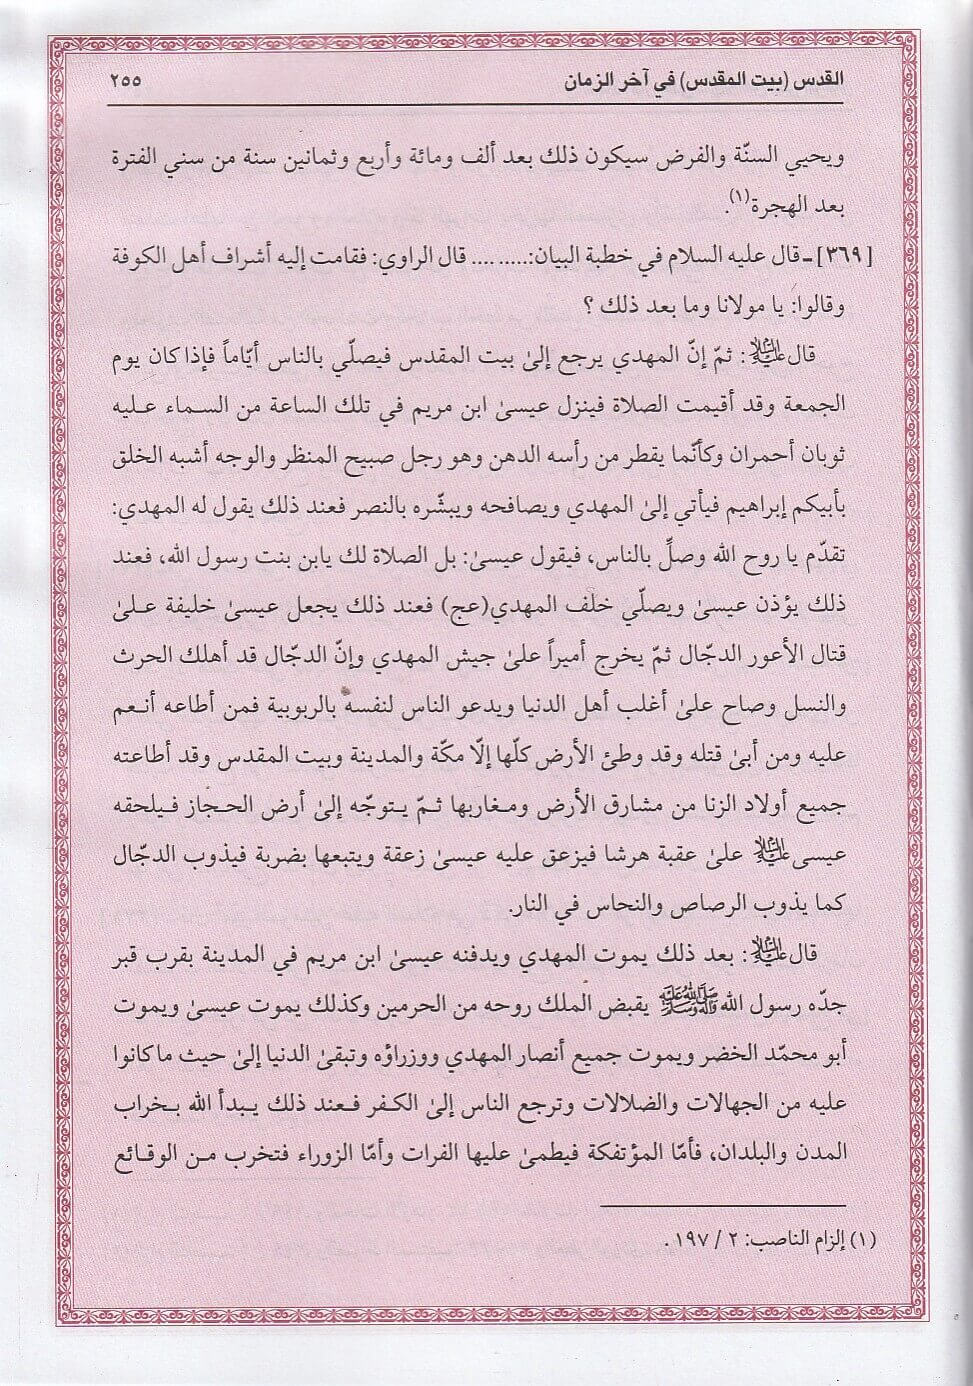 القدس (بيت المقدس) في آخر الزمان ٢٥٥
ويحيي السنّة والفرض سيكون ذلك بعد ألف ومائة وأربع وثمانين سنة من سني الفترة
بعد الهجرة(١).
[٣٦٩] ـ قال عليه السلام في خطبة البيان:......... قال الراوي: فقامت إليه أشراف أهل الكوفة
وقالوا: يا مولانا وما بعد ذلك ؟
قال عليه السلام: ثمّ إنّ المهدي يرجع إلىٰ بيت المقدس فيصلّي بالناس أيّاماً فإذا كان يوم
الجمعة وقد أقيمت الصلاة فينزل عيسىٰ ابن مريم في تلك الساعة من السماء عليه
ثوبان أحمران وكأنّما يقطر من رأسه الدهن وهو رجل صبيح المنظر والوجه أشبه الخلق
بأبيكم إبراهيم فيأتي إلىٰ المهدي ويصافحه ويبشّره بالنصر فعند ذلك يقول له المهدي:
تقدّم يا روح الله وصلِّ بالناس، فيقول عيسىٰ: بل الصلاة لك يابن بنت رسول الله، فعند
ذلك يؤذن عيسىٰ ويصلّي خلف المهدي(عج) فعند ذلك يجعل عيسىٰ خليفة علىٰ
قتال الأعور الدجّال ثمّ يخرج أميراً علىٰ جيش المهدي وإنّ الدجّال قد أهلك الحرث
والنسل وصاح علىٰ أغلب أهل الدنيا ويدعو الناس لنفسه بالربوبية فمن أطاعه أنعم
عليه ومن أبىٰ قتله وقد وطئ الأرض كلّها إلّا مكّة والمدينة وبيت المقدس وقد أطاعته
جميع أولاد الزنا من مشارق الأرض ومغاربها ثمّ يتوجّه إلىٰ أرض الحجاز فيلحقه
عيسى عليه السلام علىٰ عقبة هرشا فيزعق عليه عيسىٰ زعقة ويتبعها بضربة فيذوب الدجّال
كما يذوب الرصاص والنحاس في النار.
قال عليه السلام: بعد ذلك يموت المهدي ويدفنه عيسىٰ ابن مريم في المدينة بقرب قبر
جدّه رسول الله صلى الله عليه وآله وسلم يقبض الملك روحه من الحرمين وكذلك يموت عيسىٰ ويموت
أبو محمّد الخضر ويموت جميع أنصار المهدي ووزراؤه وتبقىٰ الدنيا إلىٰ حيث ما كانوا
عليه من الجهالات والضلالات وترجع الناس إلىٰ الكفر فعند ذلك يبدأ الله بخراب
المدن والبلدان، فأمّا المؤتفكة فيطمىٰ عليها الفرات وأمّا الزوراء فتخرب من الوقائع
(١) إلزام الناصب: ٢ / ١٩٧.